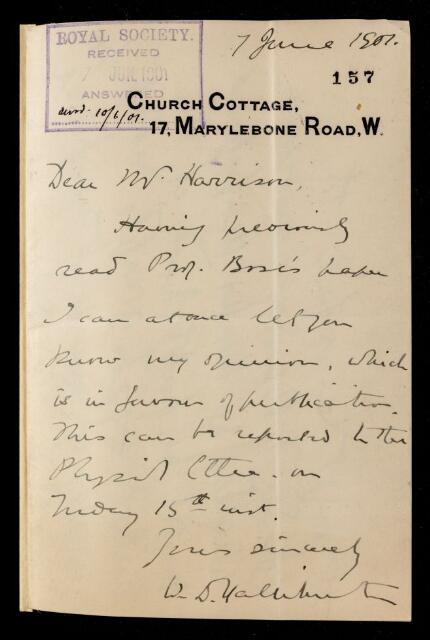 ROYAL SOCIETY.
RECEIVED
7 JUN. 1901
ANSWERED
10/6/01.
7 June 1901.
157
CHURCH COTTAGE,
17, MARYLEBONE ROAD, W.
Dear Mr. Harrison,
Having previously
read Prof. Bose's paper
I can at once let you
know my opinion, which
is in favour of publication.
This can be reported to the
Physiol Cttee. on
15th inst.
Yours sincerely
W. D. Halliburton